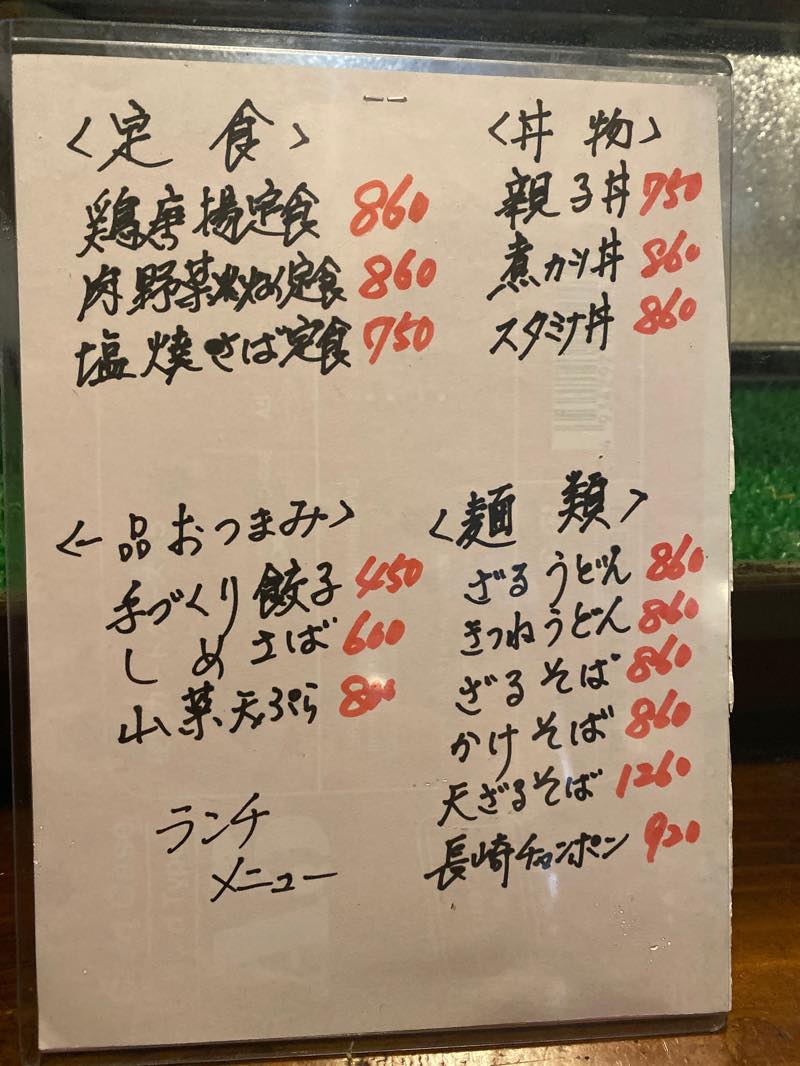 <定食>
鶏唐揚定食 860
肉野菜炒め定食 860
塩焼さば定食 750
<丼物>
親子丼 750
煮カツ丼 860
スタミナ丼 860
<一品おつまみ>
手づくり餃子 450
しめさば 600
山菜天ぷら 800
<麺類>
ざるうどん 860
きつねうどん 860
ざるそば 860
かけそば 860
天ざるそば 1260
長崎チャンポン 920
ランチ
メニュー